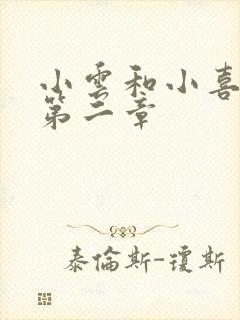 小雲和小喜
第二章
泰倫斯-瓊斯